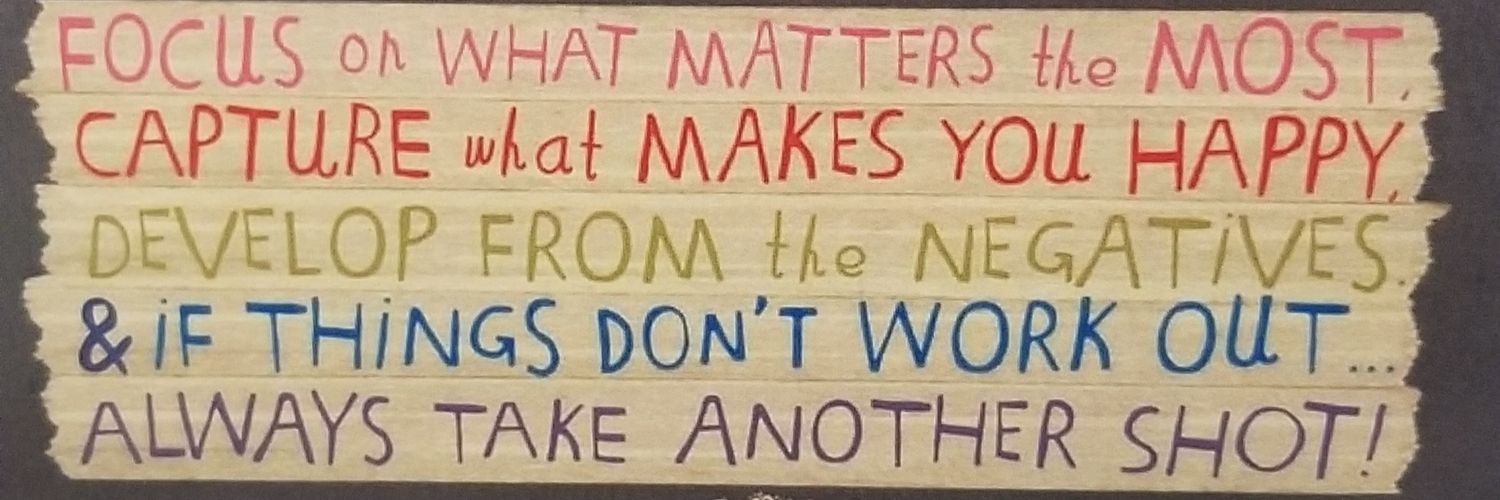 FOCUS on WHAT MATTERS the MOST.
CAPTURE what MAKES YOU HAPPY.
DEVELOP FROM the NEGATIVES.
& iF THiNGS DON'T WORK OUT...
ALWAYS TAKE ANOTHER SHOT!